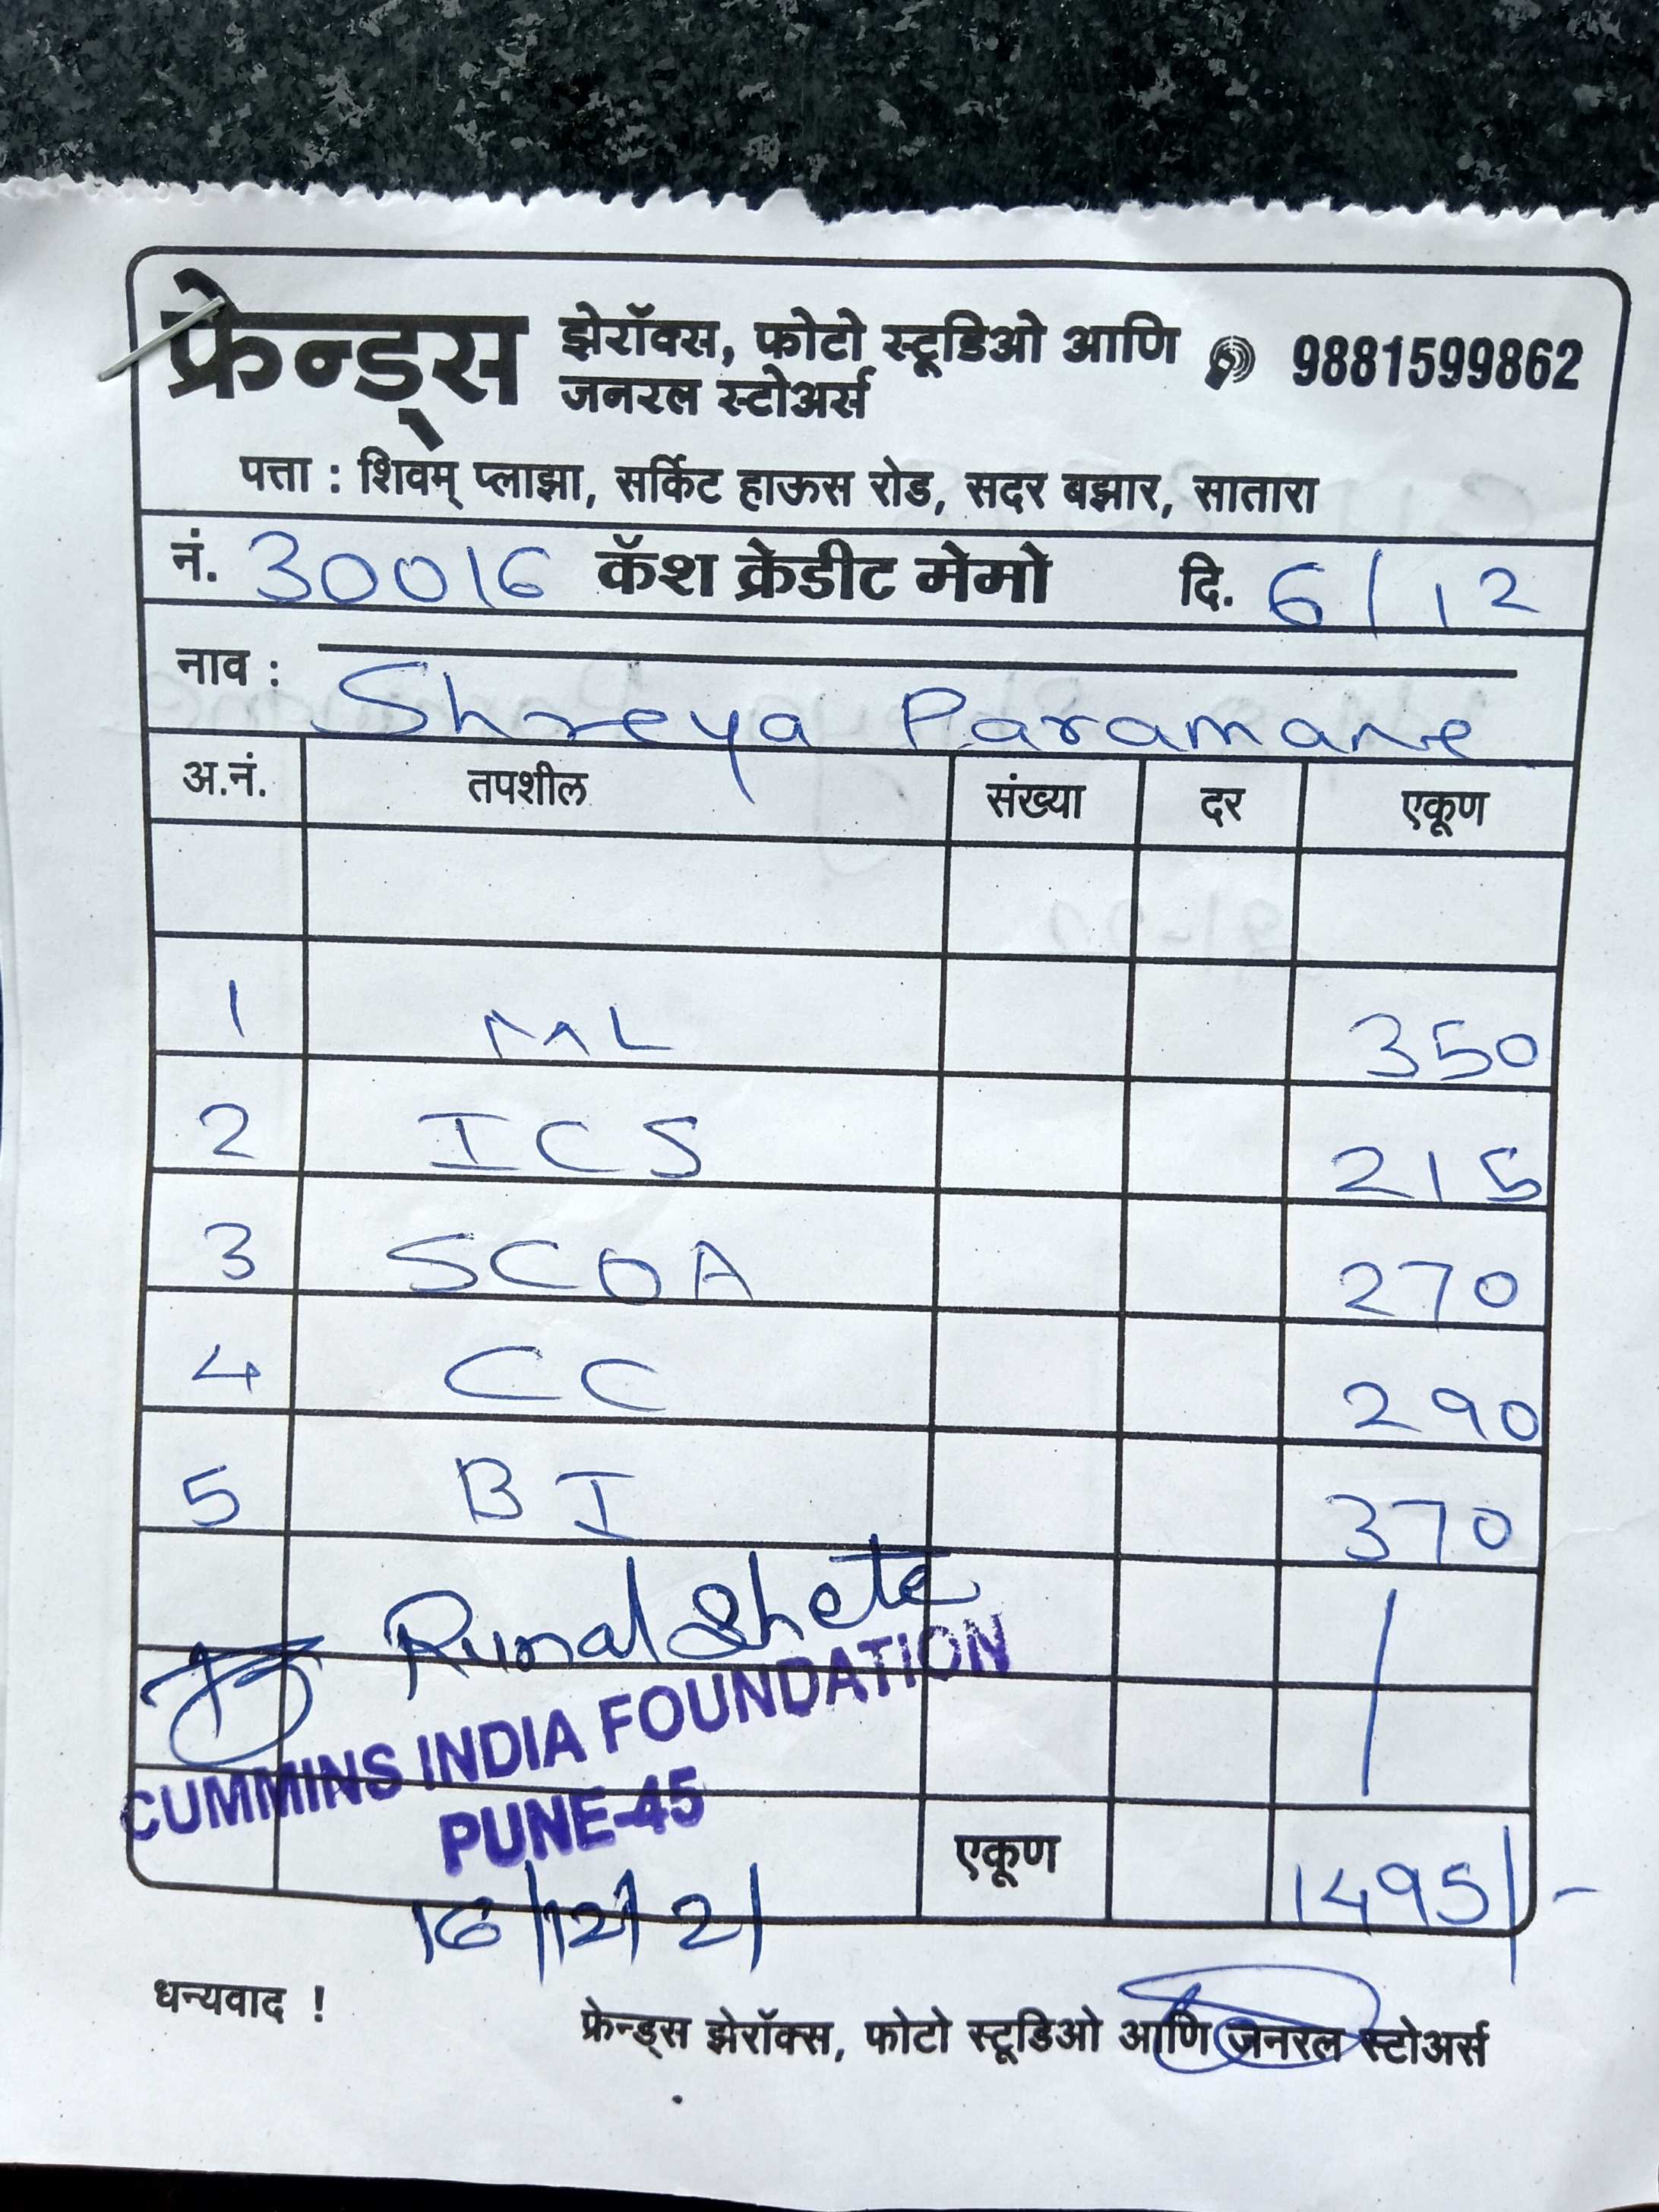 फ्रेन्ड्स झेरॉक्स, फोटो स्टूडिओ आणि 9881599862
जनरल स्टोअर्स
पत्ता : शिवम् प्लाझा, सर्किट हाऊस रोड, सदर बझार, सातारा
नं. 30016 कॅश क्रेडीट मेमो दि. 6/12
नाव : Shreya Paramane
अ.नं. तपशील संख्या दर एकूण
1 ML 350
2 ICS 215
3 SCOA 270
4 CC 290
5 BI 370
Runal Shete
CUMMINS INDIA FOUNDATION
PUNE-45
एकूण 1495/-
16/12/21
धन्यवाद !
फ्रेन्ड्स झेरॉक्स, फोटो स्टूडिओ आणि जनरल स्टोअर्स